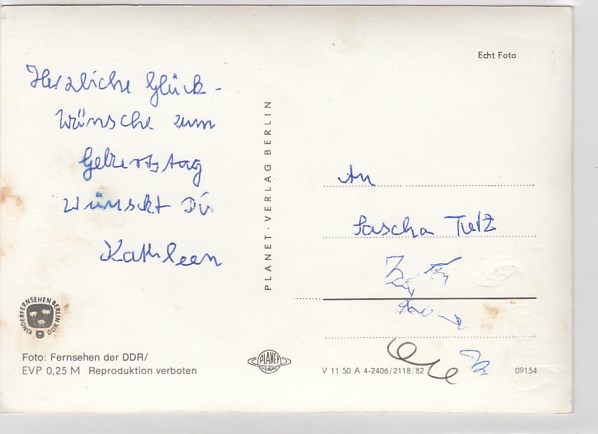 Echt Foto
Herzliche Glück-
wünsche zum
Geburtstag
wünscht Dir
Kathleen
PLANET-VERLAG BERLIN
An
Sascha Tietz
KINDERFERNSEHEN BERLIN DDR
Foto: Fernsehen der DDR/
EVP 0,25 M Reproduktion verboten
PLANET
V 11 50 A 4-2406/2118/82
09154